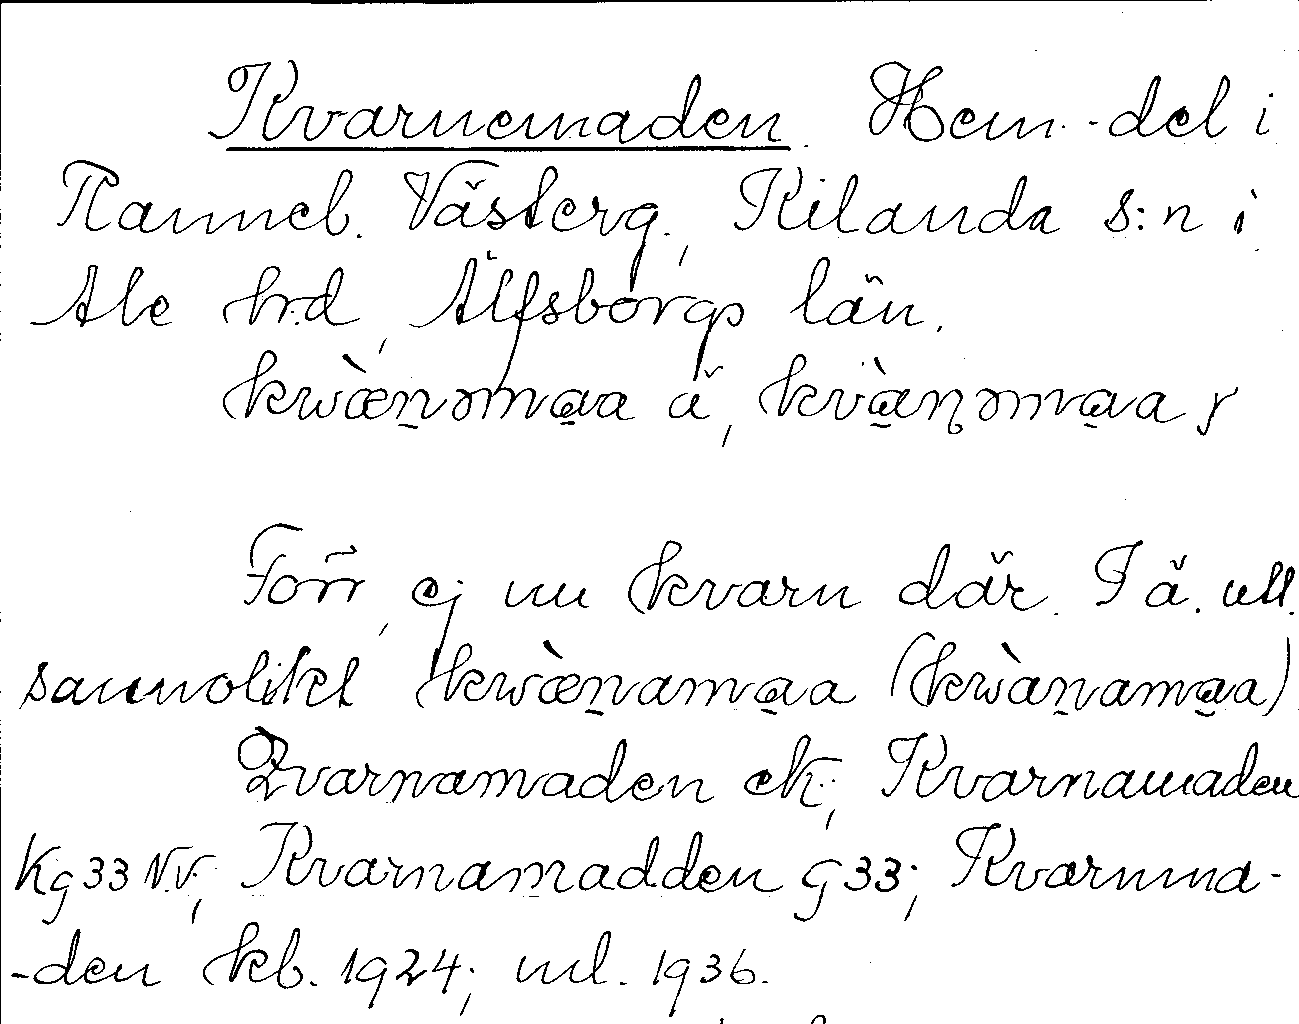 Kvarnemaden. Hem.-del i
Ranneb. Västerg., Kilanda s:n i
Ale h:d, Älfsborgs län.
kwæ̀n̠əma̠a ä, kvà̠ɳəma̠a y
Förr, ej nu kvarn där. I ä. utt.
sannolikt kwæ̀n̠ama̠a (kwàn̠ama̠a)
Qvarnamaden ek.; Kvarnamaden
Kg 33 N.V.; Kvarnamadden G 33; Kvarnma-
-den kb. 1924; ml. 1936.